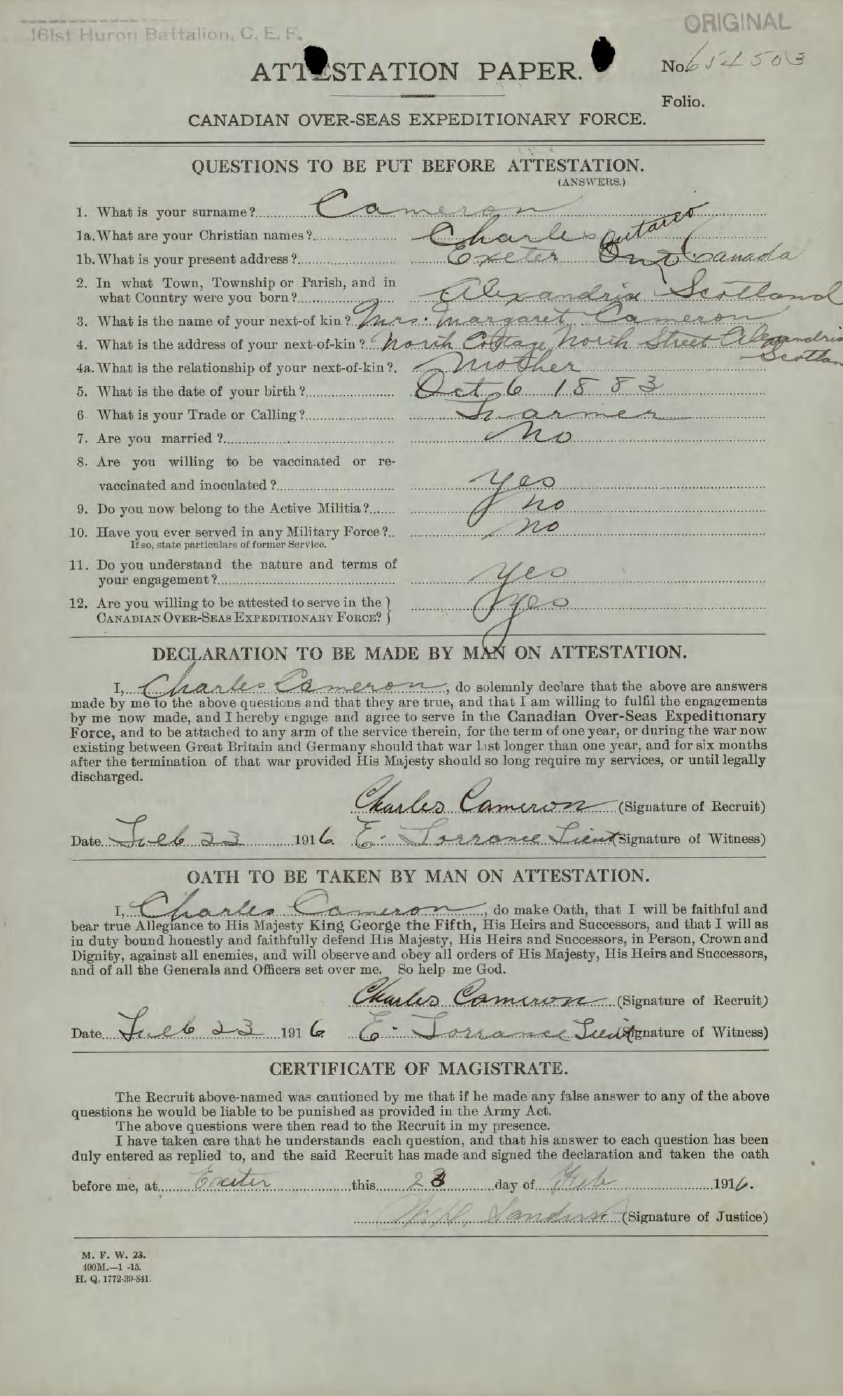 161st Huron Battalion, C. E. F.
ORIGINAL
ATTESTATION PAPER.
No. 654503
Folio.
CANADIAN OVER-SEAS EXPEDITIONARY FORCE.
QUESTIONS TO BE PUT BEFORE ATTESTATION.
(ANSWERS.)
1. What is your surname? Cameron
1a. What are your Christian names? Charles
Ontario
1b. What is your present address? Exeter Ont Canada
2. In what Town, Township or Parish, and in
what Country were you born? Alexandria Scotland
3. What is the name of your next-of kin? Mrs. Margaret Cameron
4. What is the address of your next-of-kin? North Cottage, North Street Alexandria
Scotlan
4a. What is the relationship of your next-of-kin? Mother
5. What is the date of your birth? Oct 6 1883
6 What is your Trade or Calling? Farmer
7. Are you married? No
8. Are you willing to be vaccinated or re-
vaccinated and inoculated? Yes
9. Do you now belong to the Active Militia? No
10. Have you ever served in any Military Force? No
If so, state particulars of former Service.
11. Do you understand the nature and terms of
your engagement? Yes
12. Are you willing to be attested to serve in the
CANADIAN OVER-SEAS EXPEDITIONARY FORCE? Yes
DECLARATION TO BE MADE BY MAN ON ATTESTATION.
I, Charles Cameron, do solemnly declare that the above are answers
made by me to the above questions and that they are true, and that I am willing to fulfil the engagements
by me now made, and I hereby engage and agree to serve in the Canadian Over-Seas Expeditionary
Force, and to be attached to any arm of the service therein, for the term of one year, or during the war now
existing between Great Britain and Germany should that war last longer than one year, and for six months
after the termination of that war provided His Majesty should so long require my services, or until legally
discharged.
Charles Cameron (Signature of Recruit)
Date Feb 23 1916 E. Torrance Lieut (Signature of Witness)
OATH TO BE TAKEN BY MAN ON ATTESTATION.
I, Charles Cameron, do make Oath, that I will be faithful and
bear true Allegiance to His Majesty King George the Fifth, His Heirs and Successors, and that I will as
in duty bound honestly and faithfully defend His Majesty, His Heirs and Successors, in Person, Crown and
Dignity, against all enemies, and will observe and obey all orders of His Majesty, His Heirs and Successors,
and of all the Generals and Officers set over me. So help me God.
Charles Cameron (Signature of Recruit)
Date Feb 23 1916 E. Torrance Lieut (Signature of Witness)
CERTIFICATE OF MAGISTRATE.
The Recruit above-named was cautioned by me that if he made any false answer to any of the above
questions he would be liable to be punished as provided in the Army Act.
The above questions were then read to the Recruit in my presence.
I have taken care that he understands each question, and that his answer to each question has been
duly entered as replied to, and the said Recruit has made and signed the declaration and taken the oath
before me, at Exeter this 23 day of Feb 1916.
Sanders (Signature of Justice)
M. F. W. 23.
400M.—1 -15.
H. Q. 1772-39-841.